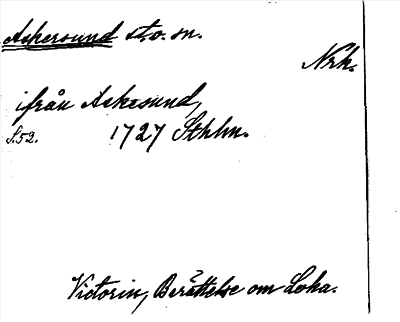 Askersund st. o. sn.
Nrk.
ifrån Askesund,
S.52. 1727 Sthlm.
Victorin, Berättelse om Loka.